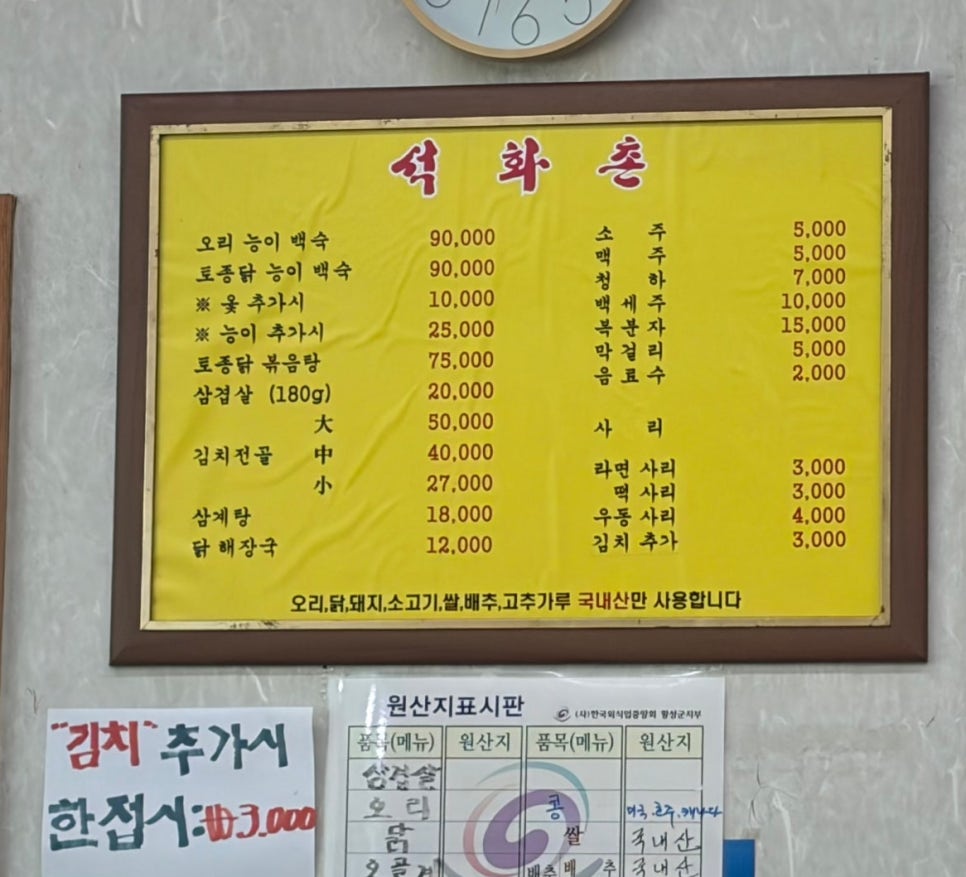 7 6 5
석 화 촌
오리 능이 백숙 90,000
토종닭 능이 백숙 90,000
※ 옻 추가시 10,000
※ 능이 추가시 25,000
토종닭 볶음탕 75,000
삼겹살 (180g) 20,000
大 50,000
김치전골 中 40,000
小 27,000
삼계탕 18,000
닭 해장국 12,000
소 주 5,000
맥 주 5,000
청 하 7,000
백 세 주 10,000
복 분 자 15,000
막 걸 리 5,000
음 료 수 2,000
사 리
라면 사리 3,000
떡 사리 3,000
우동 사리 4,000
김치 추가 3,000
오리,닭,돼지,소고기,쌀,배추,고추가루 국내산만 사용합니다
"김치" 추가시
한접시:₩3.000
원산지표시판
(사)한국외식업중앙회 횡성군지부
품목(메뉴) 원산지 품목(메뉴) 원산지
삼겹살
오 리 콩 미국.호주.캐나다
닭 쌀 국내산
배추 배 추 국내산